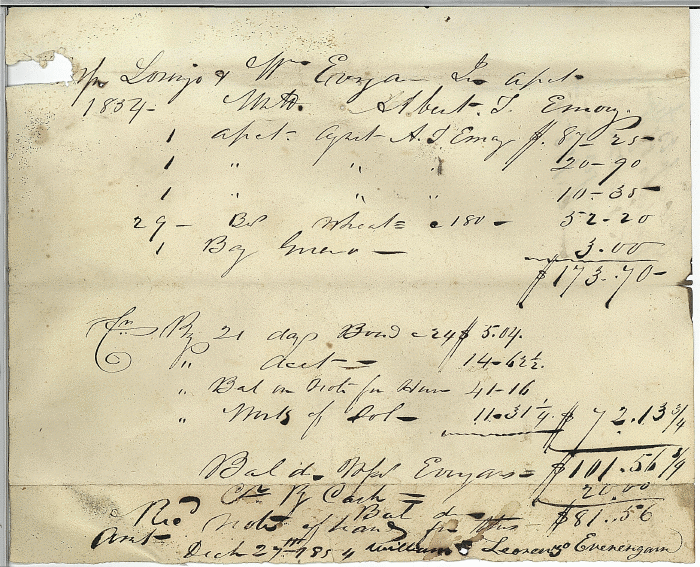 Lorenzo & Wm Evengam In acct
1854 - With Albert. T. Emory.
1 acct - agst A. T Emory $. 87-25-
1 " " " 20-90
1 " " " 10-35-
29 - Bus Wheat = @ 180 - 52-20
1 Bag Guano - 3.00
$173.70-
Cr. By 21 days Board @ 24 $ 5.04.
" acct - 14-62½.
" Bal on Note for 41-16
" Work of Sol - 11.31¼. $ 72.13¾
Bal d. Evengams = $101.56¼
Cr. By Cash = 20.00
Bal d - $81..56
Recd Note of hand for this
Amt Dech 27th 1854 William & Lorenzo Evenengam